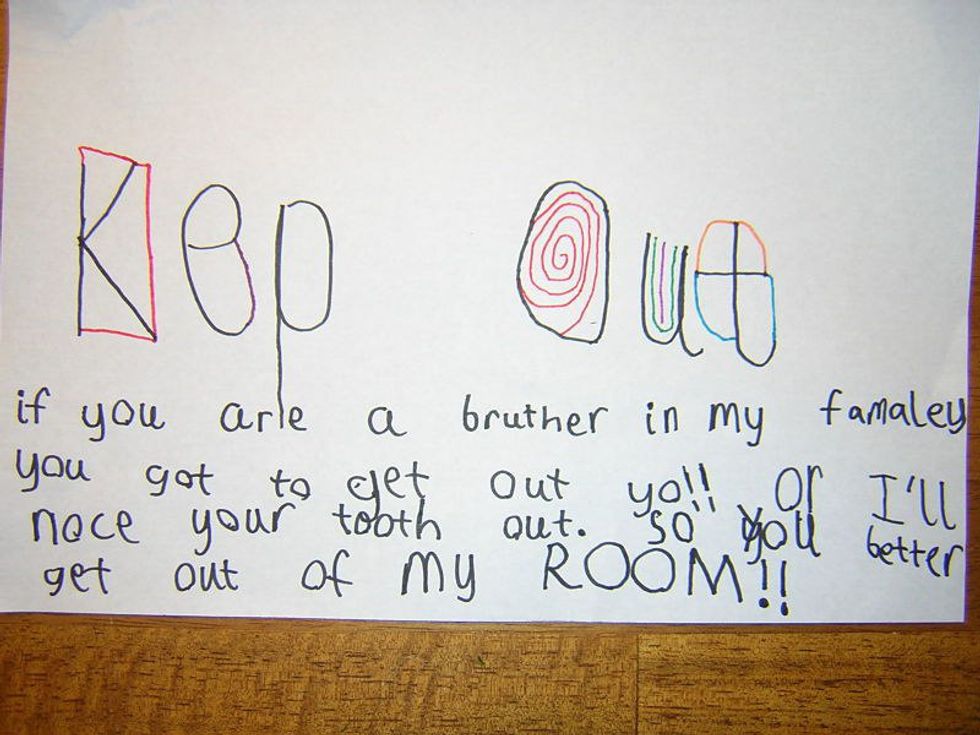 Kep Out
if you are a bruther in my famaley
you got to get out yo!! or I'll
noce your tooth out. so you better
get out of my ROOM!!